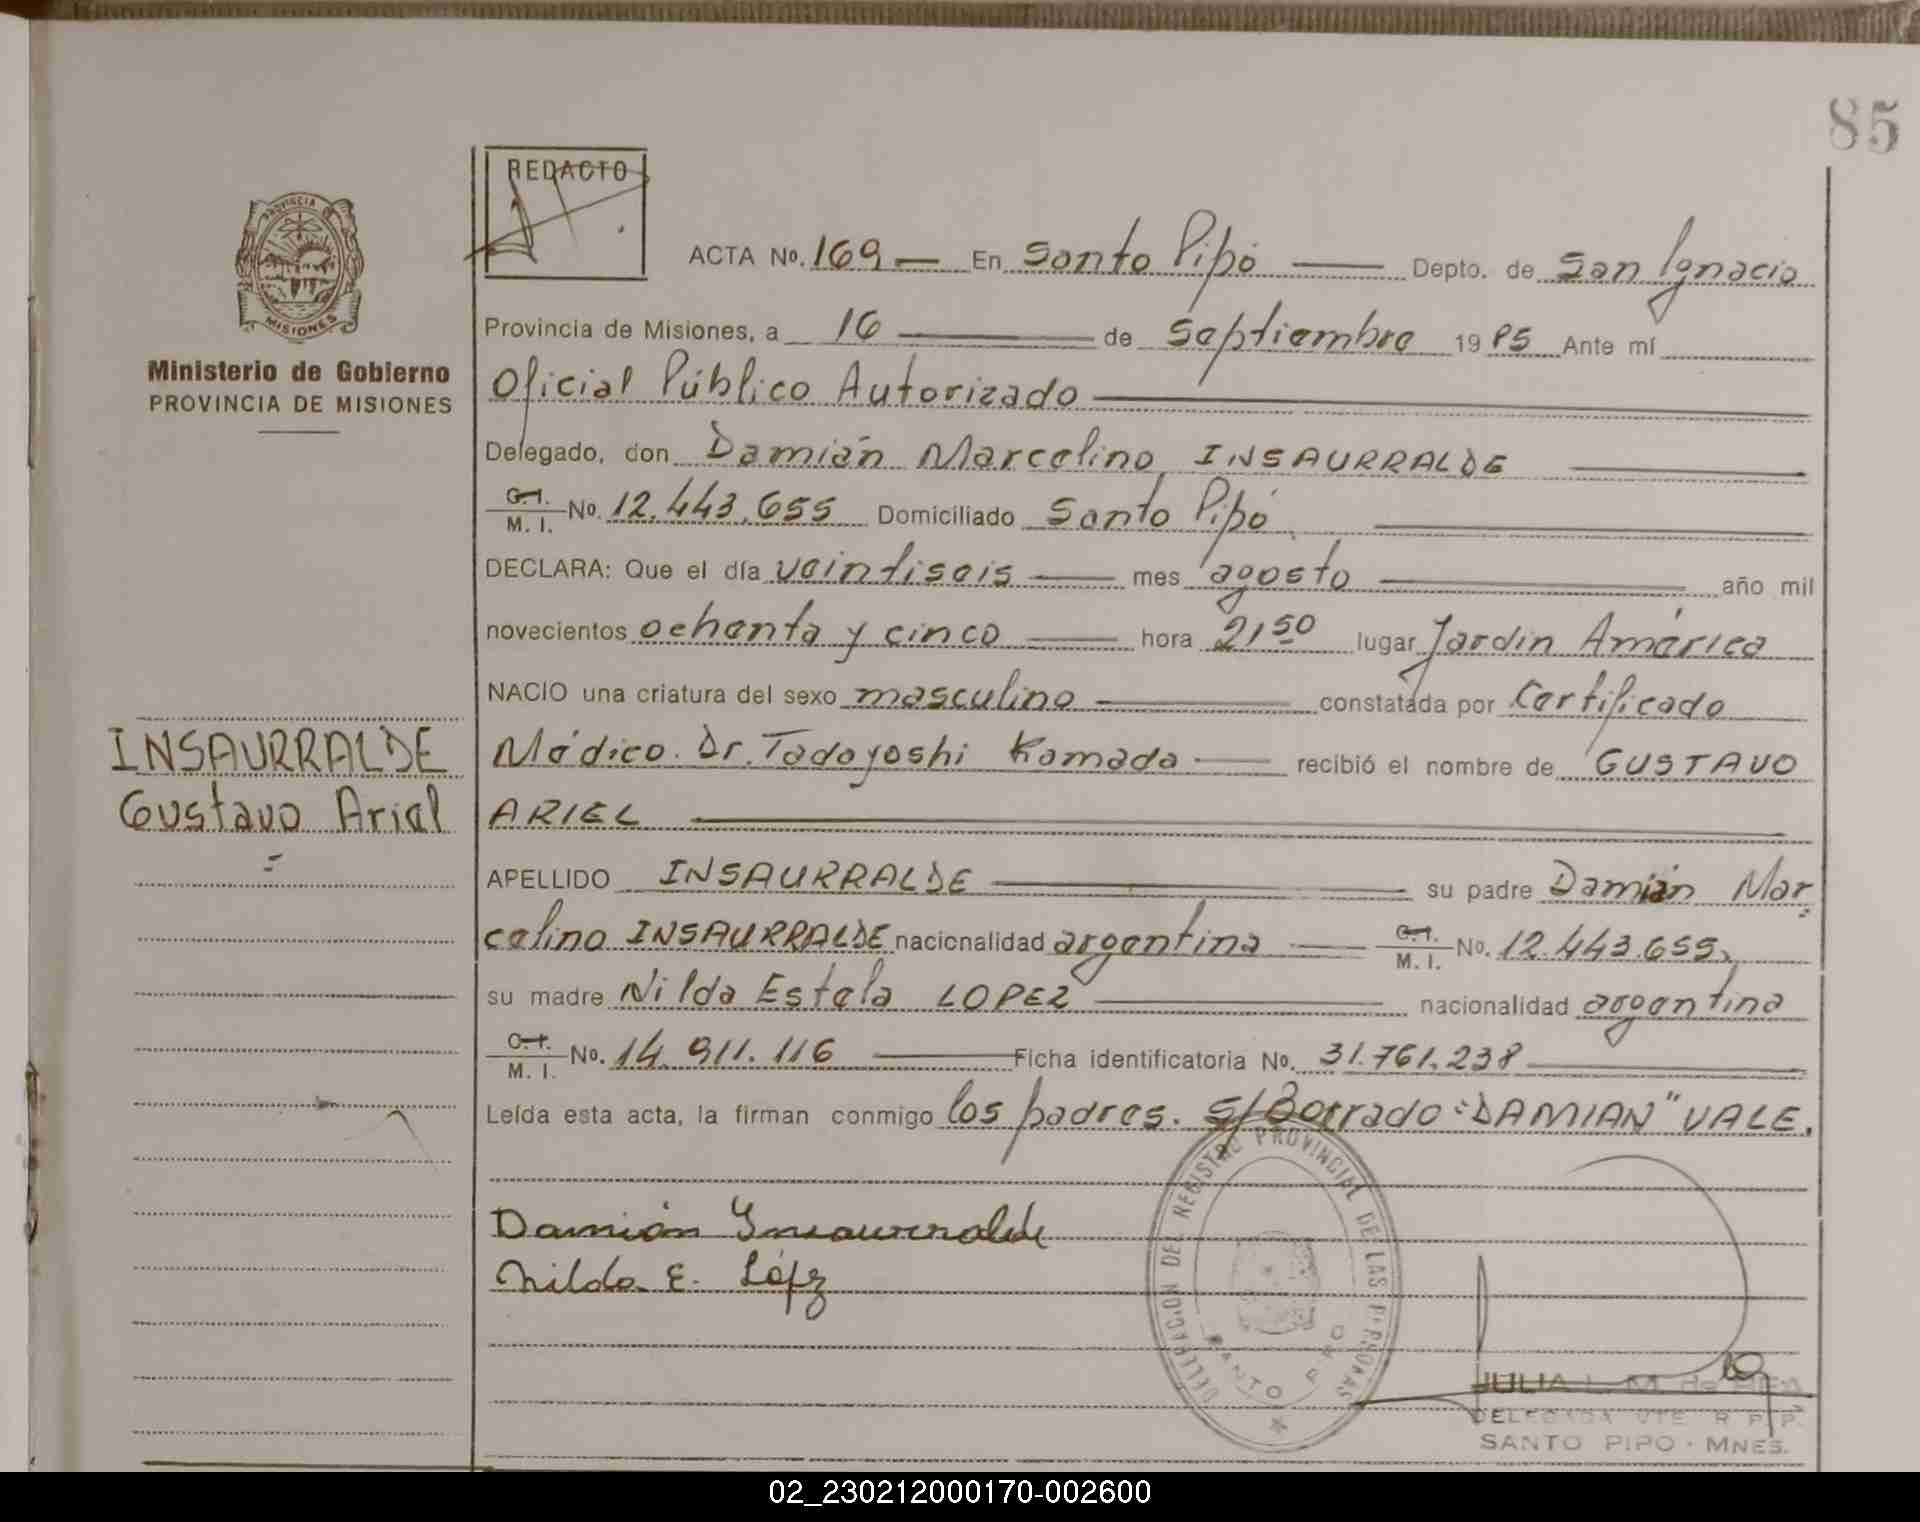 85
REDACTO
PROVINCIA DE
MISIONES
Ministerio de Gobierno
PROVINCIA DE MISIONES
ACTA No. 169 — En Santo Pipó — Depto. de San Ignacio
Provincia de Misiones, a 16 — de Septiembre 1985 Ante mí
Oficial Público Autorizado
Delegado, don Damián Marcelino INSAURRALDE
C.I. M.I. No. 12.443.655 Domiciliado Santo Pipó
DECLARA: Que el día veintiseis — mes agosto — año mil
novecientos ochenta y cinco — hora 21 50 lugar Jardín América
NACIO una criatura del sexo masculino — constatada por Certificado
Médico. Dr. Tadayoshi Kamada — recibió el nombre de GUSTAVO
ARIEL
INSAURRALDE
Gustavo Ariel
APELLIDO INSAURRALDE — su padre Damián Mar-
celino INSAURRALDE nacionalidad argentina — C.I. M.I. No. 12.443.655,
su madre Nilda Estela LOPEZ — nacionalidad argentina
C.I. M.I. No. 14.911.116 — Ficha identificatoria No. 31.761.238
Leída esta acta, la firman conmigo los padres. S/Borrado "DAMIAN" VALE.
Damián Ynsaurralde
Nilda E. López
DELEGACION DEL REGISTRO PROVINCIAL DE LAS PERSONAS
SANTO PIPO
JULIA L. M. de
DELEGADA VTE R. P. P.
SANTO PIPO - MNES.
02_230212000170-002600